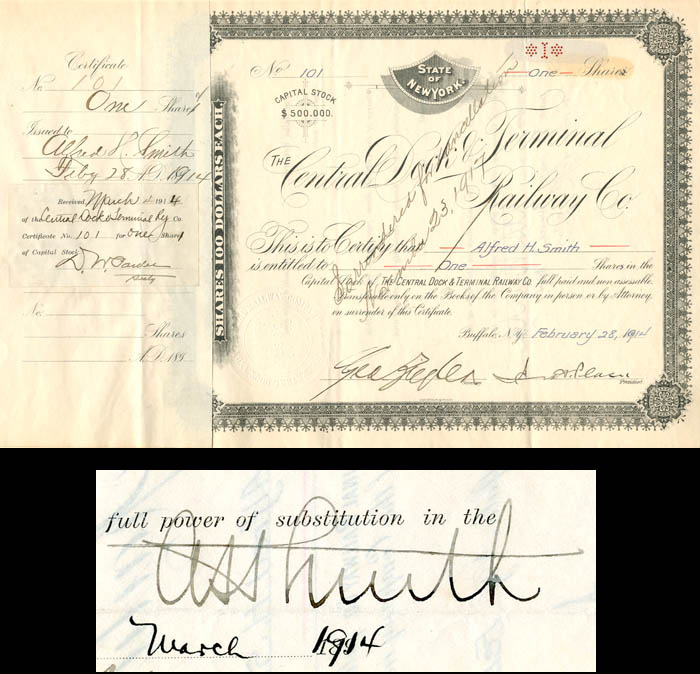 Certificate
No. 101
One Shares
Issued to
Alfred H. Smith
Feby 28. A.D. 1914
Received March 4 1914
of the Central Dock & Terminal Ry Co.
Certificate No. 101 for one Shares
of Capital Stock
Secty
No.
Shares
A.D. 189
SHARES 100 DOLLARS EACH.
*1*
No 101
STATE OF NEW YORK.
One Shares
CAPITAL STOCK
$500.000.
THE Central Dock & Terminal
Railway Co.
This is to Certify that Alfred H. Smith
is entitled to One Shares in the
Capital Stock of THE CENTRAL DOCK & TERMINAL RAILWAY CO. full paid and non assessable.
Transferable only on the Books of the Company in person or by Attorney,
on surrender of this Certificate.
Buffalo, N.Y. February 28, 1914
President
Surrendered for Cancellation
23, 1914
full power of substitution in the
A H Smith
March 1914